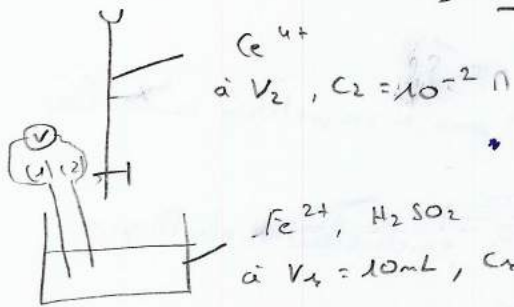 Ce⁴⁺
à V₂, C₂ = 10⁻² M
V
(1) (2)
Fe²⁺, H₂SO₂
à V₁ = 10mL, C₁